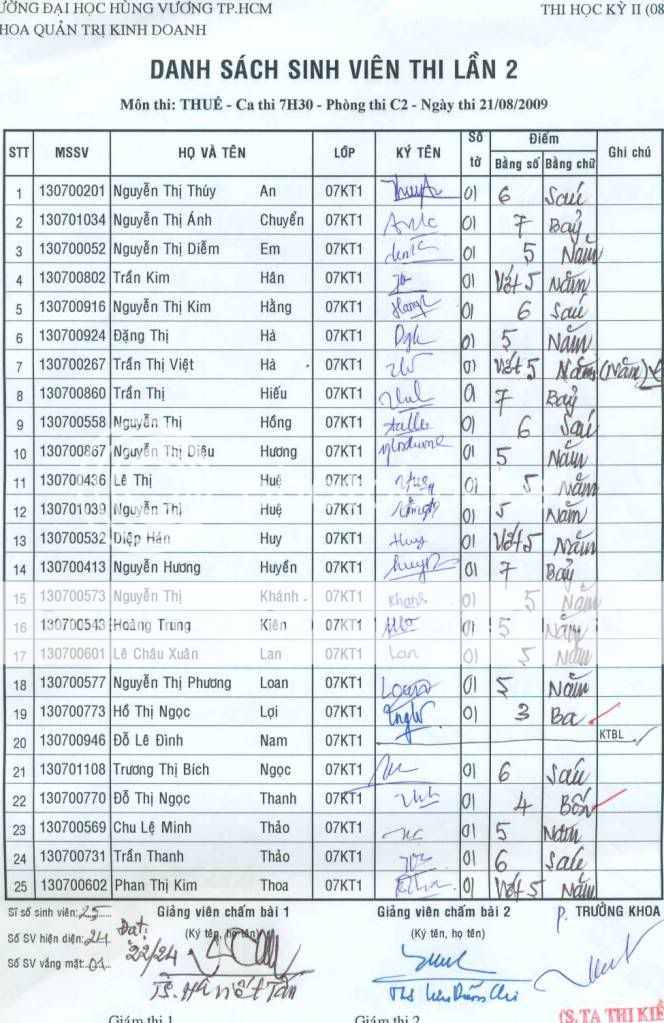 ƯỜNG ĐẠI HỌC HÙNG VƯƠNG TP.HCM THI HỌC KỲ II (08
HOA QUẢN TRỊ KINH DOANH
DANH SÁCH SINH VIÊN THI LẦN 2
Môn thi: THUẾ - Ca thi 7H30 - Phòng thi C2 - Ngày thi 21/08/2009
STT MSSV HỌ VÀ TÊN LỚP KÝ TÊN Số tờ Điểm Ghi chú
Bằng số Bằng chữ
1 130700201 Nguyễn Thị Thúy An 07KT1 01 6 Sáu
2 130701034 Nguyễn Thị Ánh Chuyển 07KT1 01 7 Bảy
3 130700052 Nguyễn Thị Diễm Em 07KT1 01 5 Năm
4 130700802 Trần Kim Hân 07KT1 01 Vớt 5 Năm
5 130700916 Nguyễn Thị Kim Hằng 07KT1 01 6 Sáu
6 130700924 Đặng Thị Hà 07KT1 01 5 Năm
7 130700267 Trần Thị Việt Hà 07KT1 01 Vớt 5 Năm (Năm)
8 130700860 Trần Thị Hiếu 07KT1 01 7 Bảy
9 130700558 Nguyễn Thị Hồng 07KT1 01 6 Sáu
10 130700867 Nguyễn Thị Diệu Hương 07KT1 01 5 Năm
11 130700436 Lê Thị Huê 07KT1 01 5 Năm
12 130701039 Nguyễn Thị Huệ 07KT1 01 5 Năm
13 130700532 Diệp Hán Huy 07KT1 Huy 01 Vớt 5 Năm
14 130700413 Nguyễn Hương Huyền 07KT1 01 7 Bảy
15 130700573 Nguyễn Thị Khánh 07KT1 01 5 Năm
16 130700543 Hoàng Trung Kiên 07KT1 01 5 Năm
17 130700601 Lê Châu Xuân Lan 07KT1 Lan 01 5 Năm
18 130700577 Nguyễn Thị Phương Loan 07KT1 Loan 01 5 Năm
19 130700773 Hồ Thị Ngọc Lợi 07KT1 01 3 Ba
20 130700946 Đỗ Lê Đình Nam 07KT1 KTBL
21 130701108 Trương Thị Bích Ngọc 07KT1 01 6 Sáu
22 130700770 Đỗ Thị Ngọc Thanh 07KT1 01 4 Bốn
23 130700569 Chu Lệ Minh Thảo 07KT1 01 5 Năm
24 130700731 Trần Thanh Thảo 07KT1 01 6 Sáu
25 130700602 Phan Thị Kim Thoa 07KT1 01 Vớt 5 Năm
Sĩ số sinh viên: 25 Giảng viên chấm bài 1 Giảng viên chấm bài 2 P. TRƯỞNG KHOA
Số SV hiện diện: 24 Đạt: (Ký tên, họ tên) (Ký tên, họ tên)
Số SV vắng mặt: 01 22/24
Giám thị 1 Giám thị 2 TS. TẠ THỊ KIỀ